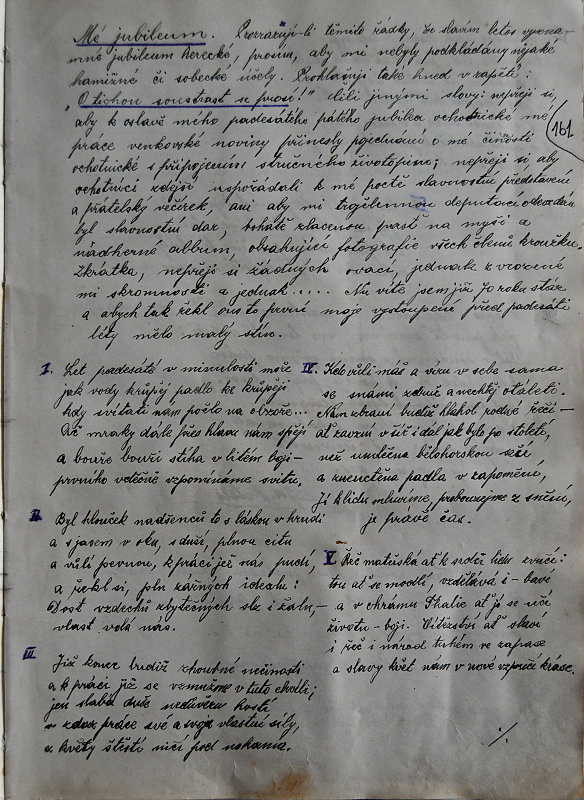 Mé jubileum. Prozrazuji-li těmito řádky, že slavím letos význa-
mné jubileum herecké, prosím, aby mi nebyly podkládány nějaké
hamižné či sobecké účely. Prohlašuji také hned v zápětí:
„O tichou soustrast se prosí!" čili jinými slovy: nepřeji si,
aby k oslavě mého padesátého pátého jubilea ochotnické mé
práce venkovské noviny přinesly pojednání o mé činnosti
ochotnické s připojením stručného životopisu; nepřeji si aby
ochotníci zdejší uspořádali k mé poctě slavnostní představení
a přátelský večírek, ani aby mi tříčlennou deputací odevzdán
byl slavnostní dar, bohatě zlacenou past na myši a
nádherné album, obsahující fotografie všech členů kroužku.
Zkrátka, nepřeji si žádných ovací, jednak z vrozené
mi skromnosti a jednak.... Nu víte jsem již 70 roků stár
a abych tak řekl ono to první moje vystoupení před padesáti
léty mělo malý stín.
161.
I. Let padesáté v minulosti moře
jak vody krůpěj padlo ke krůpěji
kdy svítati nám počlo na obzoře...
Dč mraky dále přes hlavu nám spějí
a bouře bouři stíhá v lítém boji-
prvního vděčně vzpomínáme svitu.
II. Byl hlouček nadšenců to s láskou v hrudi
a s jasem v oku, s duší, plnou citu
a vůlí pevnou, k práci jež nás pudí,
a řekl si, pln zářných ideálů:
Dost vzdechů zbytečných slz i žalu,-
vlast volá nás.
III Již konec budiž zhoubné nečinnosti
a k práci již se vzmužme v tuto chvíli;
jen slabá duše nedůvěru hostí
v zdar práce své a svoje vlastní síly,
a květy štěstí ničí pod nohama.
IV. Kdo vůli máš a víru v sebe sama
se s námi združ a nechtěj otáleti.
Nám zbraní budiž hlahol rodné řeči—
ať zavzní v šíř i dál jak bylo po století,
než umlčena bělohorskou sečí
a zneuctěna padla v zapomění,
Již k lidu mluvme, probouzejme z snění,
je právě čas.
V. Řeč mateřská ať k srdci lidu zvučí:
tou ať se modlí, vzdělává i - baví
a v chrámu Thalie ať jí se učí
životu - boji. Vítězství ať slaví
i řeč i národ tuhém ve zápase
a slávy květ nám v nové vzpučí kráse.
·/.